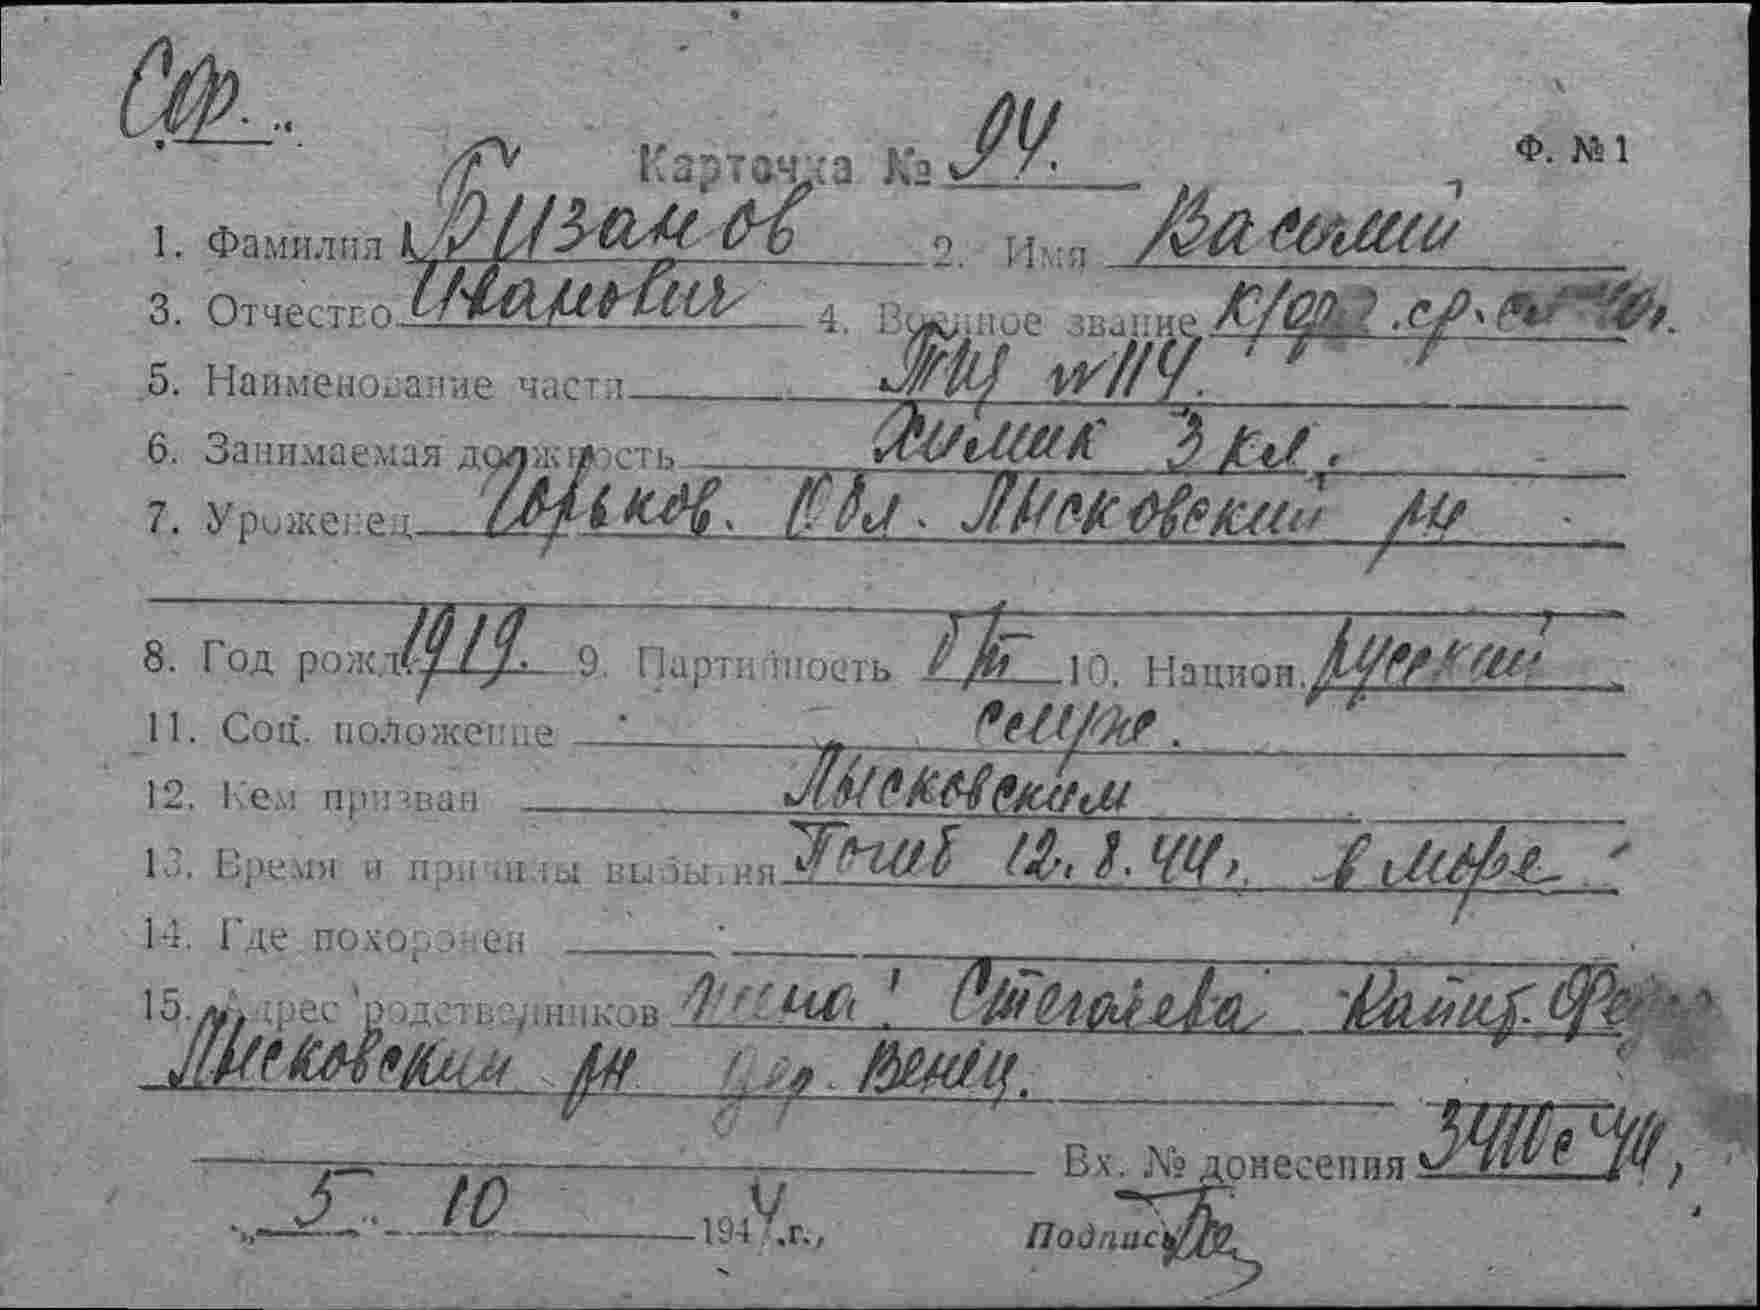 СФ.
Карточка № 94. Ф. № 1
1. Фамилия Бизанов 2. Имя Василий
3. Отчество Иванович 4. Военное звание к/фл. ср. сл.
5. Наименование части ТЩ № 114.
6. Занимаемая должность Химик 3 кл.
7. Уроженец Горьков. Обл. Лысковский рн
8. Год рожд. 1919. 9. Партийность б/п 10. Национ. русский
11. Соц. положение служ.
12. Кем призван Лысковским
13. Время и причины выбытия Погиб 12.8.44г. в море
14. Где похоронен
15. Адрес родственников жена: Капит.
Лысковский рн дер. Венец.
Вх. № донесения 3410с 44,
„ 5 " 10 1944 г.,
Подпись